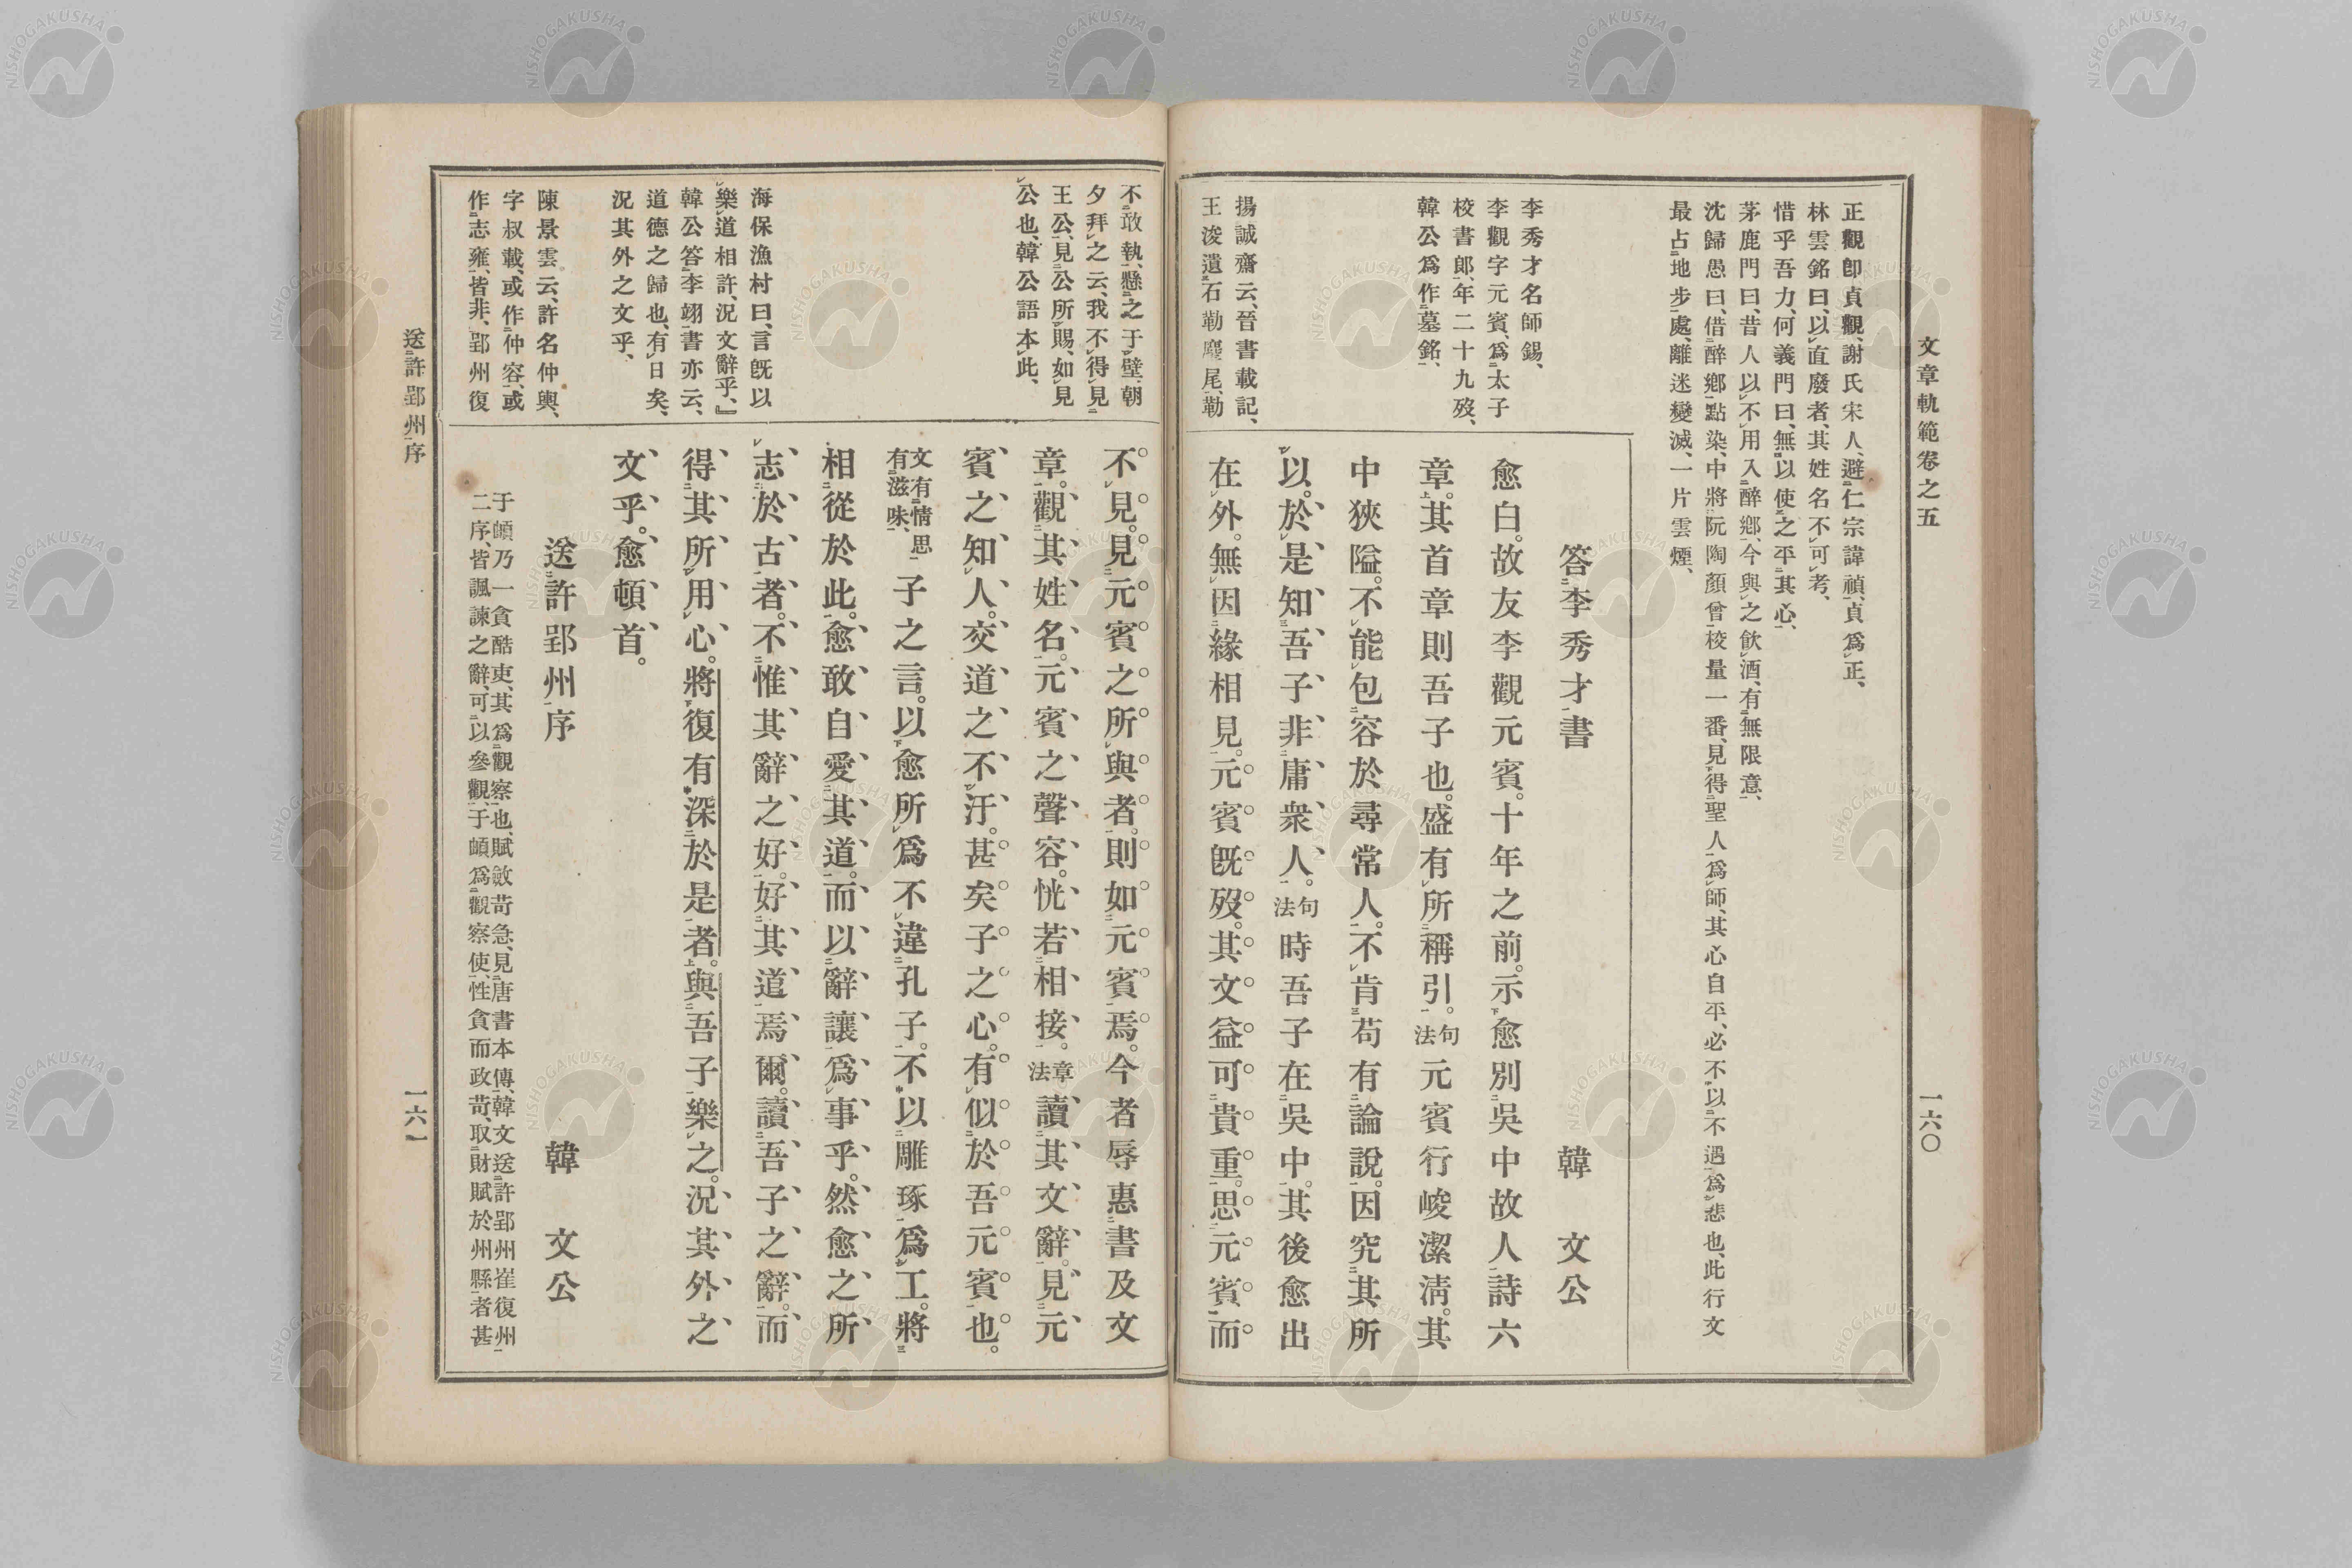 文章軌範卷之五
一六〇
正觀卽貞觀、謝氏宋人、避仁宗諱禎、貞爲正、
林雲銘曰、以直廢者、其姓名不可考、
惜乎吾力、何義門曰、無以使之平其心、
茅鹿門曰、昔人以不用入醉鄉、今與之飮酒、有無限意、
沈歸愚曰、借醉鄉點染、中將阮陶顏曾稜量一番、見得聖人爲師、其心自平、必不以不遇爲悲也、此行文
最占地步處、離迷變滅、一片雲煙、
李秀才名師錫、
李觀字元賓、爲太子
校書郎、年二十九歿、
韓公爲作墓銘、
揚誠齋云、晉書載記、
王浚遺石勒麈尾、勒
答李秀才書　韓文公
愈白。故友李觀元賓。十年之前。示愈別吳中故人詩六
章。其首章則吾子也。盛有所稱引。句法元賓行峻潔淸。其
中狹隘。不能包容於尋常人。不肯苟有論說。因究其所
以。於是知吾子非庸衆人。句法時吾子在吳中。其後愈出
在外。無因緣相見。元賓旣歿。其文益可貴重。思元賓而
不敢執、懸之于壁、朝
夕拜之云、我不得見
王公、見公所賜、如見
公也、韓公語本此、
海保漁村曰、言旣以
樂道相許、況文辭乎、』
韓公答李翊書亦云、
道德之歸也、有日矣、
況其外之文乎、
陳景雲云、許名仲輿、
字叔載、或作仲容、或
作志雍、皆非、郢州復
不見。見元賓之所與者。則如元賓焉。今者辱惠書及文
章。觀其姓名。元賓之聲容。恍若相接。章法讀其文辭。見元
賓之知人。交道之不汙。甚矣子之心。有似於吾元賓也。
文有情思有滋味、子之言。以愈所爲不違孔子。不以雕琢爲工。將
相從於此。愈敢自愛其道。而以辭讓爲事乎。然愈之所
志於古者。不惟其辭之好。好其道焉爾。讀吾子之辭。而
得其所用心。將復有深於是者。與吾子樂之。況其外之
文乎。愈頓首。
送許郢州序　韓文公
于頔乃一貪酷吏、其爲觀察也、賦斂苛急、見唐書本傳、韓文送許郢州崔復州
二序、皆諷諫之辭、可以參觀、于頔爲觀察使、性貪而政苛、取財賦於州縣者甚
送許郢州序
一六一
NISHOGAKUSHA